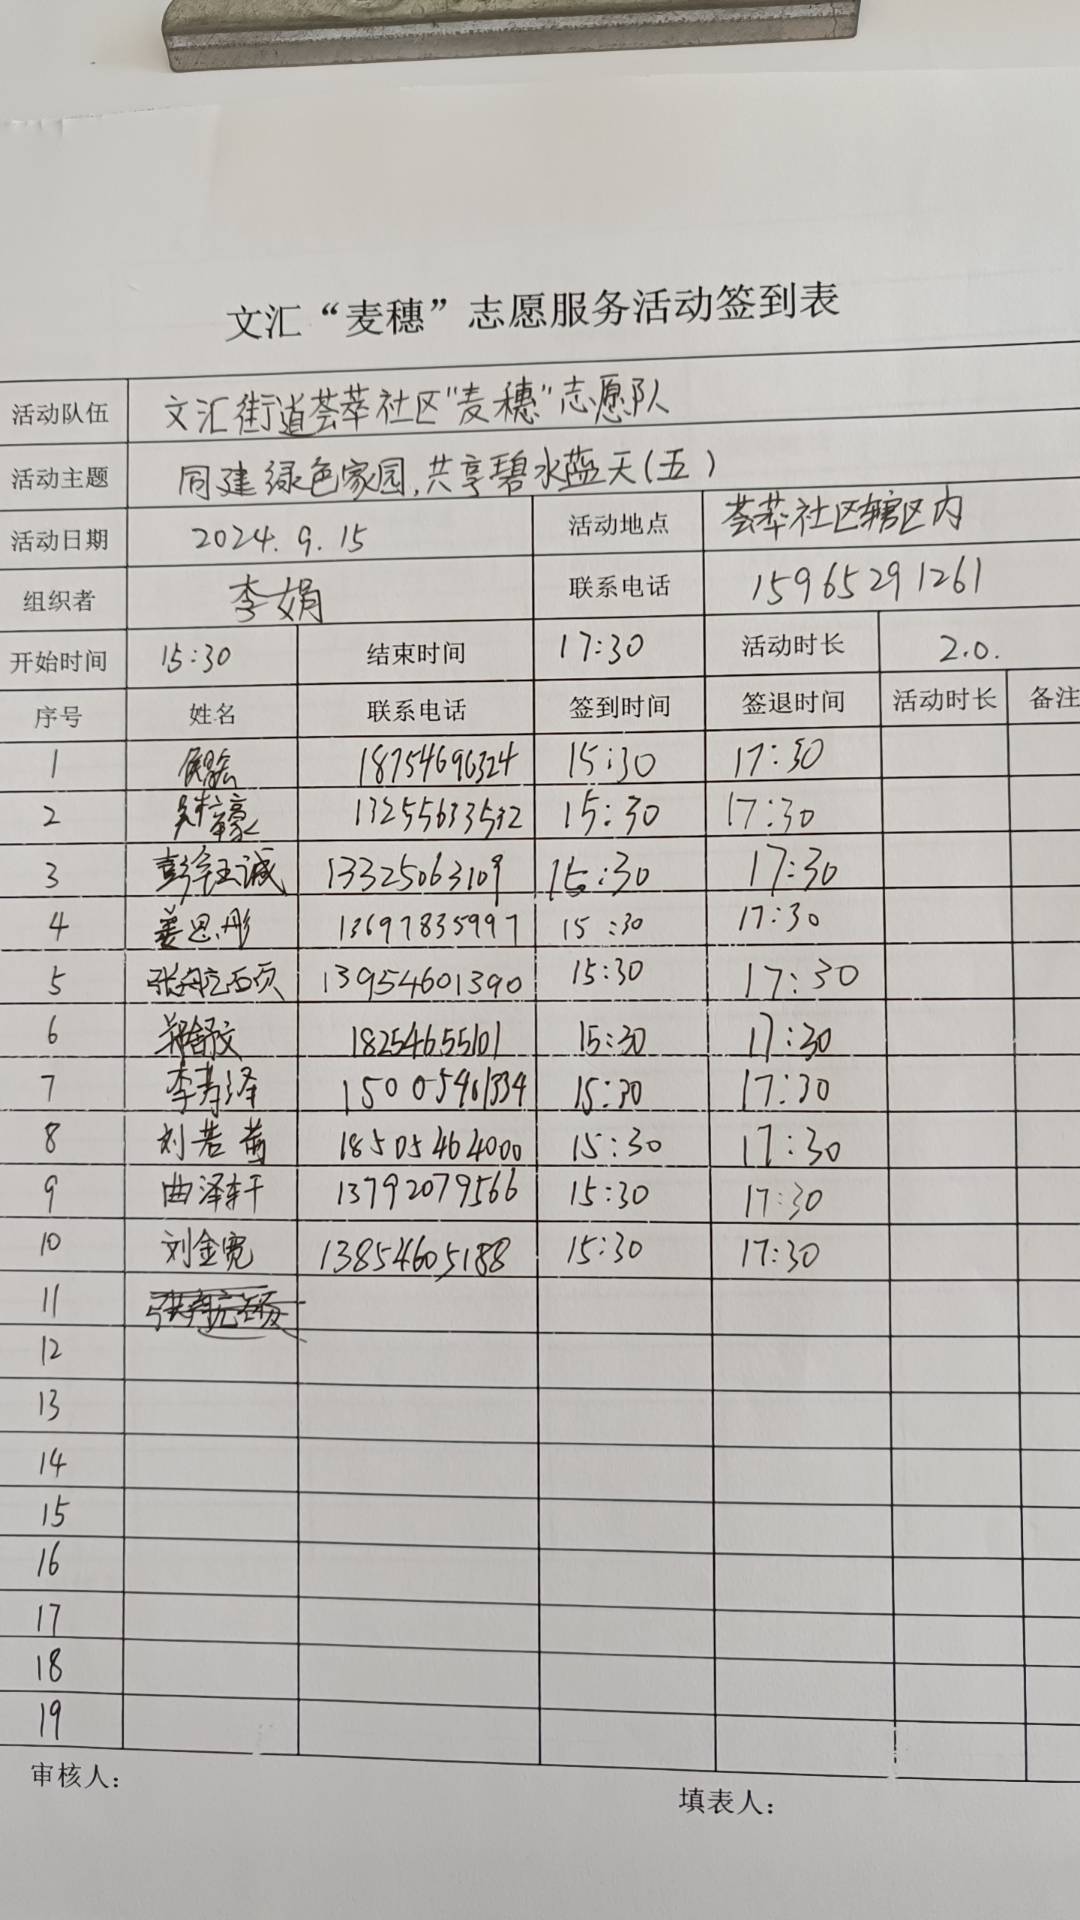 文汇“麦穗”志愿服务活动签到表
活动队伍 文汇街道荟萃社区"麦穗"志愿队
活动主题 同建绿色家园,共享碧水蓝天(五)
活动日期 2024.9.15 活动地点 荟萃社区辖区内
组织者 李娟 联系电话 15965291261
开始时间 15:30 结束时间 17:30 活动时长 2.0.
序号 姓名 联系电话 签到时间 签退时间 活动时长 备注
1 18754696324 15:30 17:30
2 13255633532 15:30 17:30
3 13325063109 15:30 17:30
4 姜思彤 13697835997 15:30 17:30
5 13954601390 15:30 17:30
6 郑舒文 18254655101 15:30 17:30
7 李寿泽 15005461334 15:30 17:30
8 刘若茜 18505464000 15:30 17:30
9 曲泽轩 13792079566 15:30 17:30
10 刘金宽 13854605188 15:30 17:30
11
12
13
14
15
16
17
18
19
审核人： 填表人：